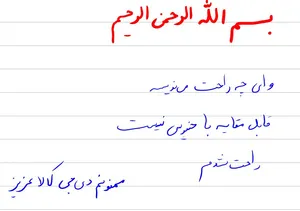 بسم الله الرحمن الرحیم
وای چه راحت می‌نویسه
قابل مقایسه با خیلی نیست
راحت شدم
ممنونم دی جی کالا عزیز